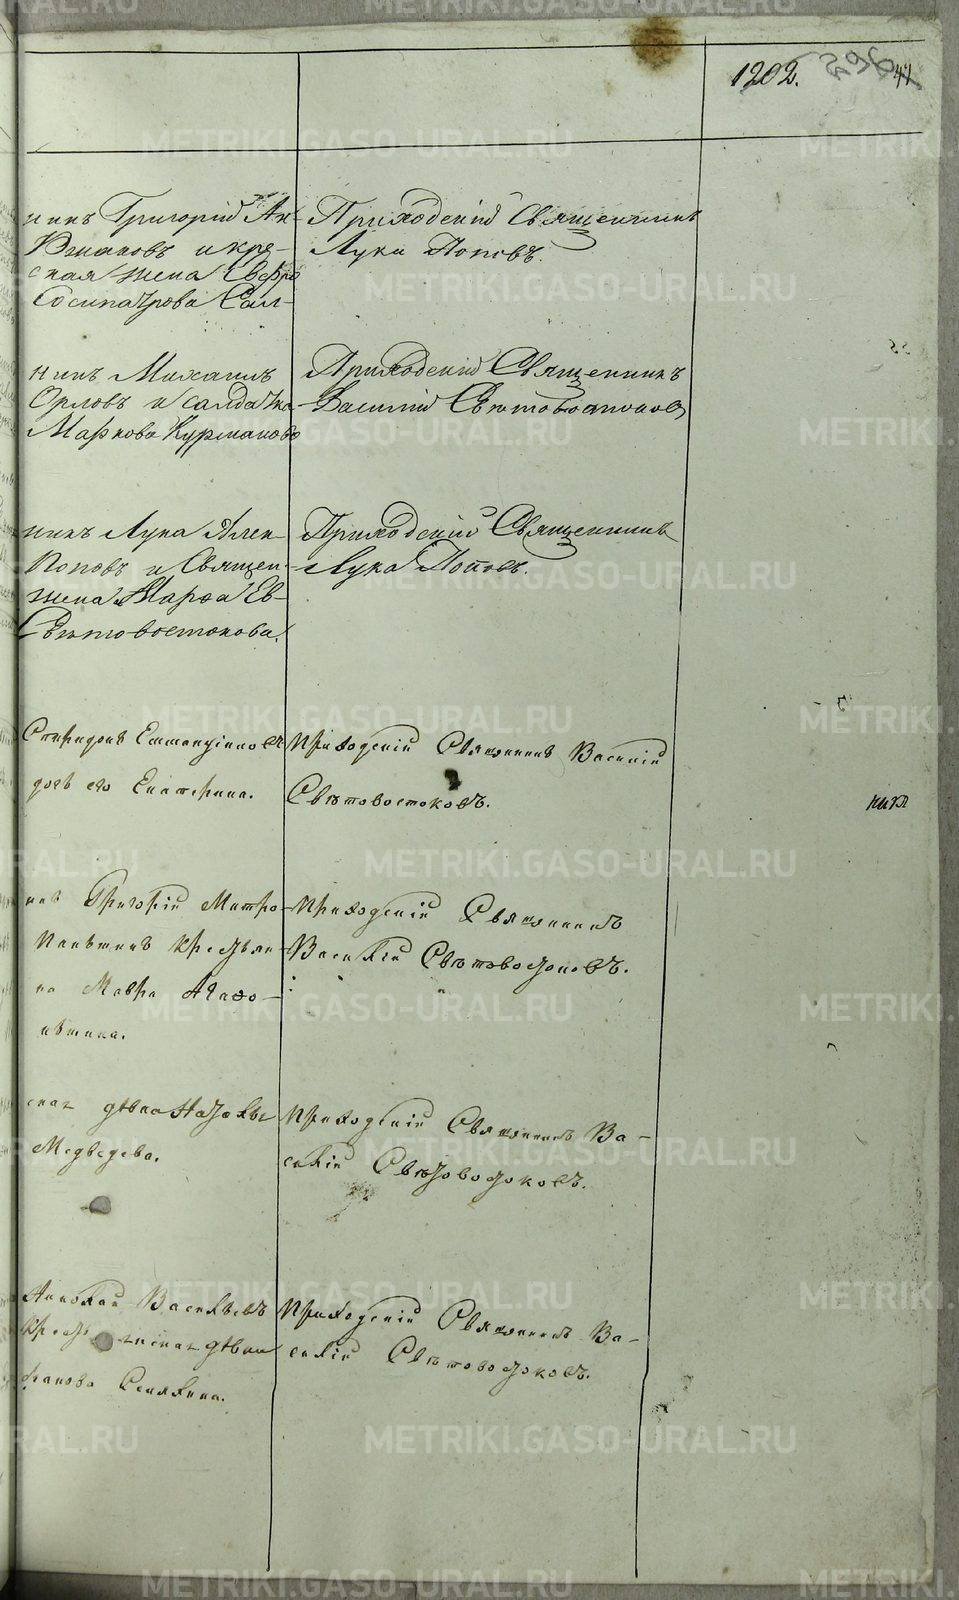 1202. 47
нинъ Григорій Ан-
Южаковъ и кре-
ская жена Евфро
Сосипатрова Сал-
Приходскій Священникъ
Лука Поповъ.
нинъ Михаилъ
Орловъ и салдатка
Маркова Курманова
Приходскій Священникъ
Василій Свѣтовостоковъ
никъ Лука Алек-
Поповъ и Священ-
жена Марѳа Ев-
Свѣтовостокова.
Приходскій Священникъ
Лука Поповъ.
Спиридонъ Еммануиловъ
дочь его Екатерина.
Приходскій Священникъ Василій
Свѣтовостоковъ.
нъ Григорій Митро-
крестьян-
на Мавра Агаѳо-
Приходскій Священникъ
Василій Свѣтовостоковъ.
ская дѣвка Наталья
Медведева.
Приходскій Священникъ Ва-
силій Свѣтовостоковъ.
Николай Васильевъ
дѣвка
Приходскій Священникъ Ва-
силій Свѣтовостоковъ.
METRIKI.GASO-URAL.RU